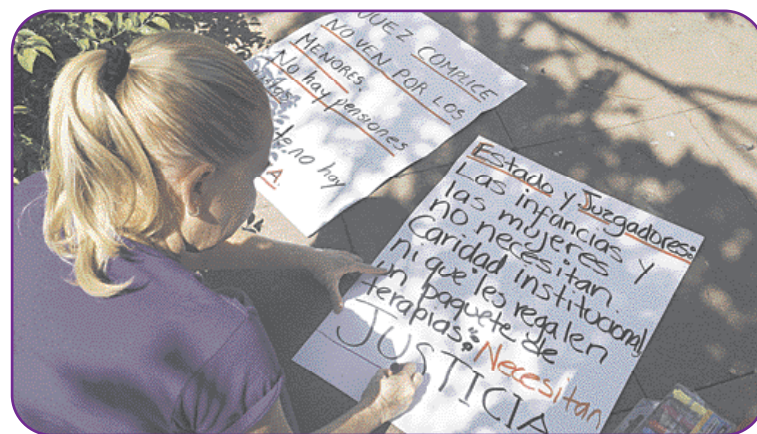 JUEZ COMPLICE
NO VEN POR LOS
MENORES.
No hay pensiones
no hay
A.
Estado y Juzgadores:
Las infancias y
las mujeres
no necesitan
Caridad institucional,
ni que les regalen
un paquete de
terapias. Necesitan
JUSTICIA